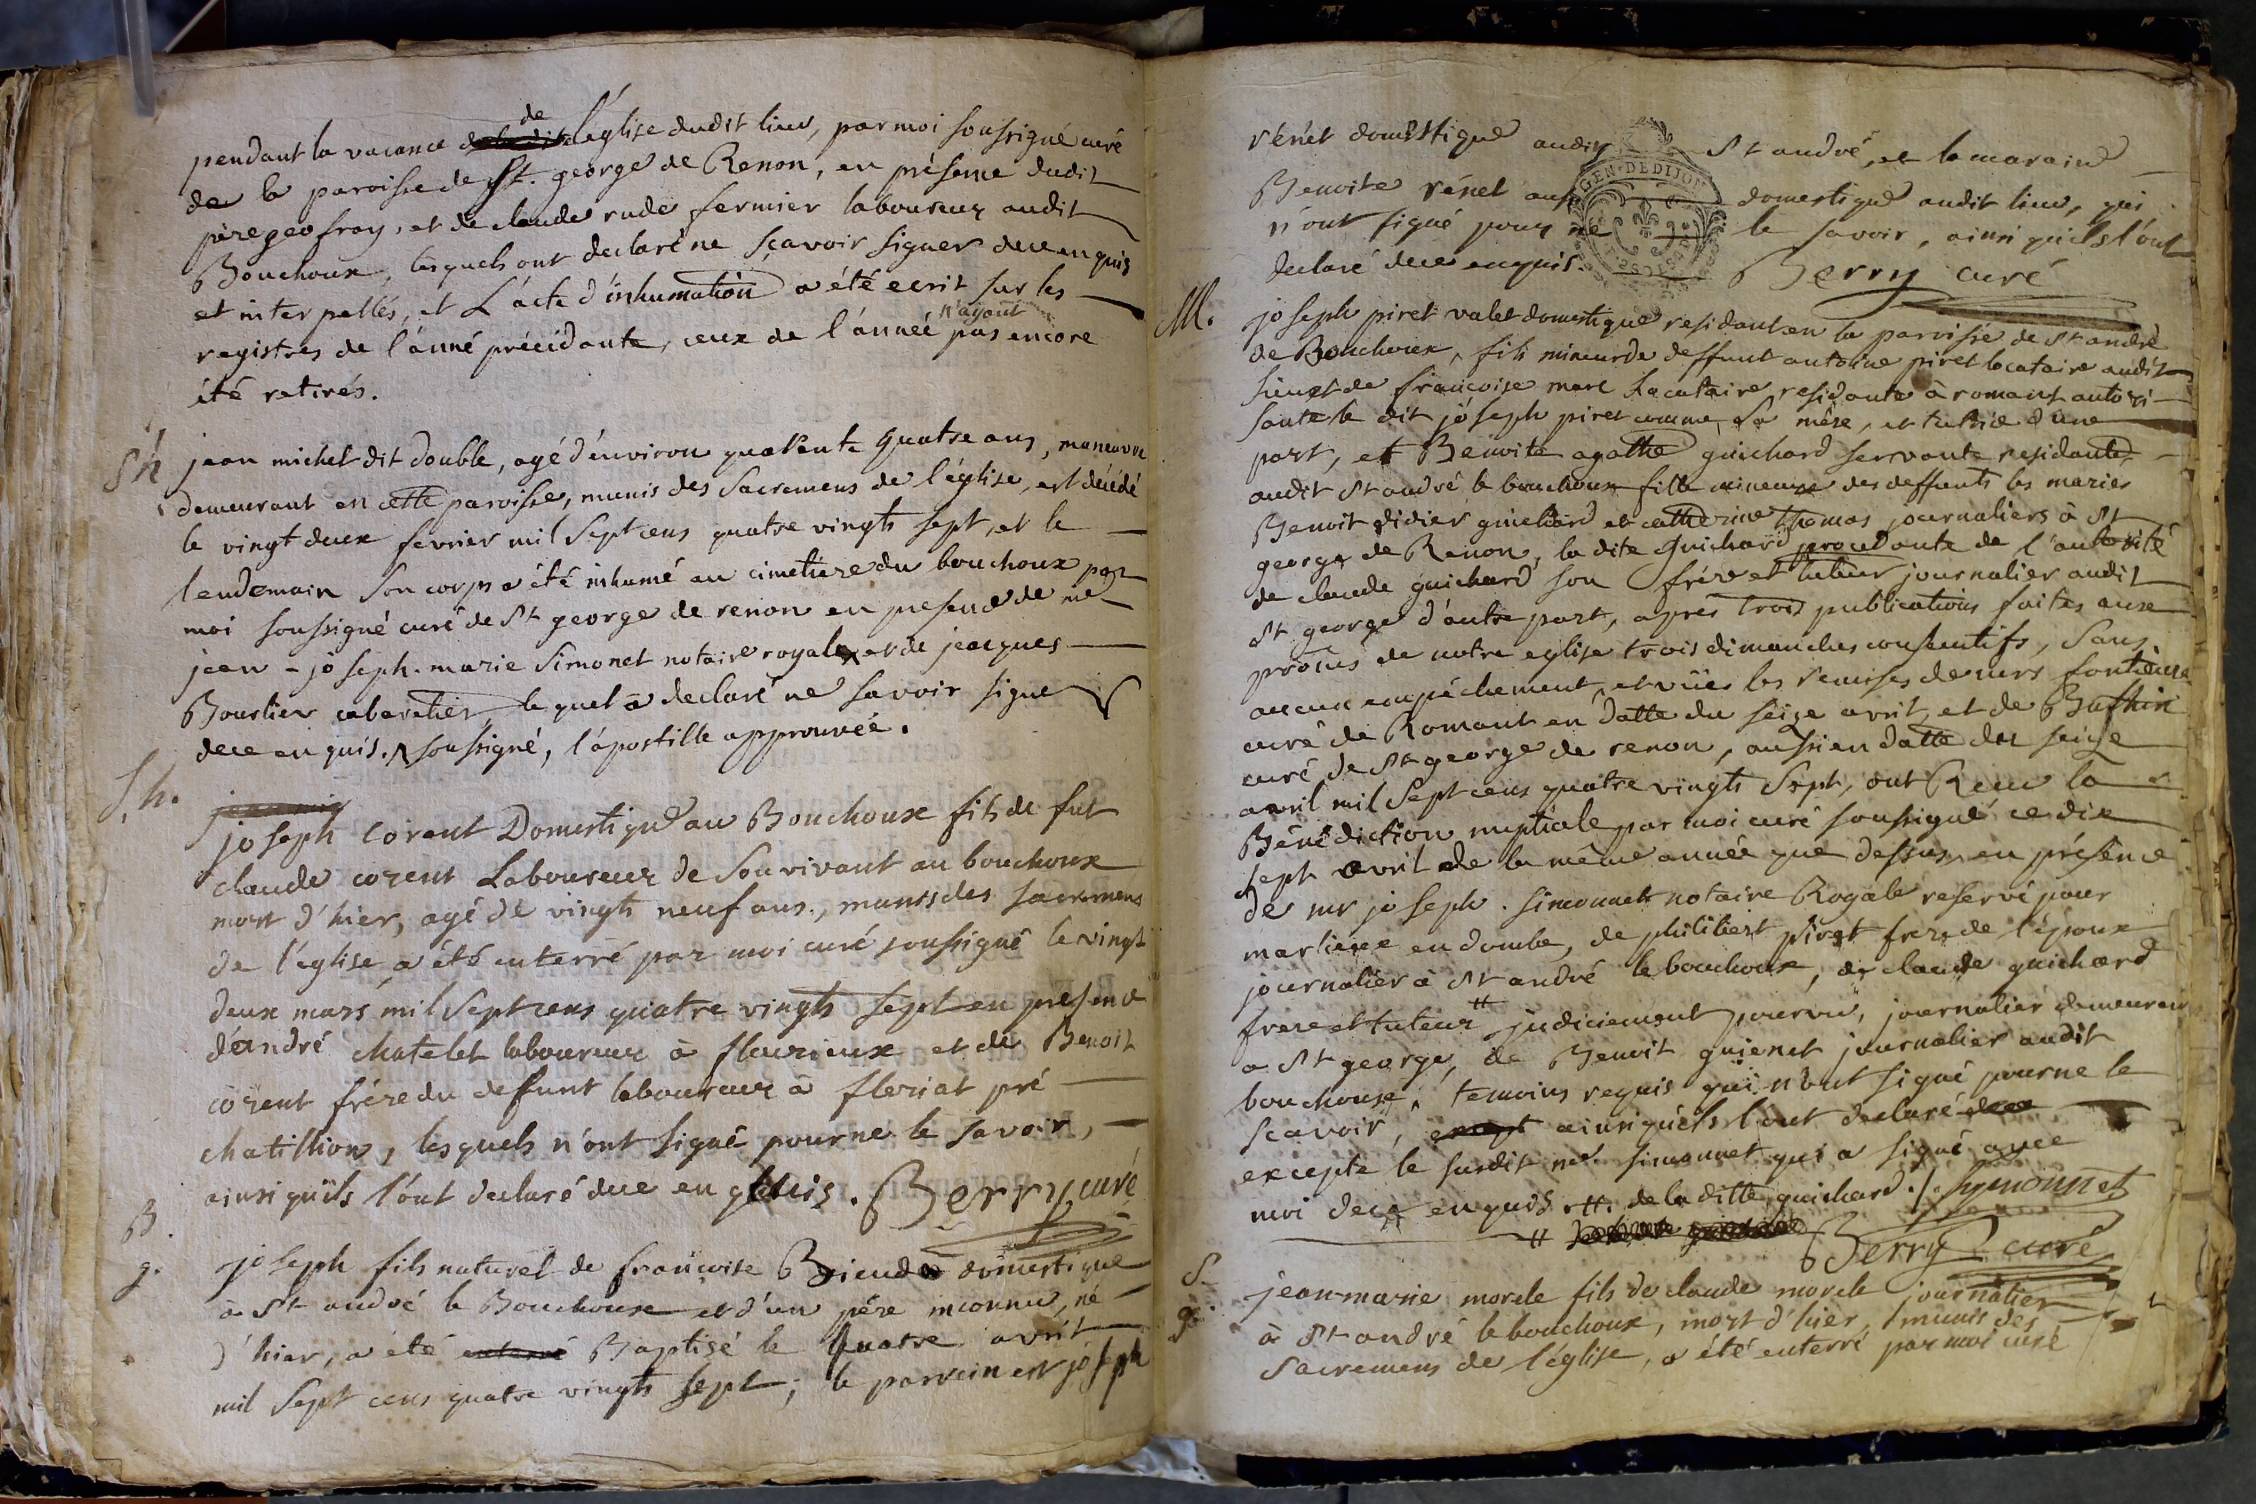 pendant la vacance de l'église dudit lieu, par moi soussigné curé
de la paroisse de St. george de Renon, en présence dudit
père geofray, et de claude rude fermier laboureur audit
Bouchoux, lesquels ont declaré ne sçavoir signer dece enquis
et interpellés, et L'acte d'inhumation a été ecrit sur les
registres de l'anné précidante, ceux de l'anneé n'ayant pas encore
été retirés.
Sh
jean michel dit double, agé d'environ quarente quatre ans, maneuvre
demeurant en cette paroisse, munis des Sacremens de l'église, est décédé
le vingt deux fevrier mil Sept cens quatre vingts sept, et le
lendemain son corps a été inhumé au cimetiere du bouchoux par
moi soussigné curé de St george de renon en presence de me
jean-joseph-marie Simonet notaire royale et de jeacques
Bourlier cabaretier, le quel a declaré ne savoir signer
dece enquis. soussigné, l'apostille approuvée.
Sh.
joseph corent Domestique au Bouchoux fils de fut
claude corent Laboureur de Son vivant au bouchoux
mort d'hier, agé de vingts neuf ans, munis des sacremens
de l'église a été enterré par moi curé soussigné le vingt
deux mars mil Sept cens quatre vingts sept en presence
d'andré chatelet laboureur à fleurieux et de Benoit
corent frére du deffunt laboureur à fleriat pré
chatillion, lesquels n'ont signé pour ne le savoir,
ainsi qu'ils l'ont declaré dece enquis. Berry curé
B.
g.
joseph fils naturel de francoise Briende domestique
à St andré le Bouchoux et d'un père inconnu, né
d'hier, a été enterré Baptisé le quatre avril
mil Sept cens quatre vingts sept; le parrein est joseph
vénet domestique audit St andré, et la maraine
Benoite vénet aussi domestique audit lieu, qui
n'ont signé pour ne le savoir, ainsi qu'ils l'ont
declaré dece enquis. Berry curé
GEN·DEDIJON
M.
joseph piret valet domestique residant en la paroisse de St andré
de Bouchoux, fils mineur de deffunt antoine piret locataire audit
lieu et de francoise marc Locataire residante à romant autori
sante le dit joseph piret comme sa mère, et tutrice d'une
part, et Benoite agathe guichard servante residante
audit St andré le bouchoux fille mineure des deffunts les mariés
Benoit didier guichard et catherine thomas journaliers à St
george de Renon, la dite guichard procedante de l'autorité
de claude guichard son frére et tuteur journalier audit
St george d'autre part, après trois publications faites aux
prônes de notre eglise trois dimanches consecutifs, Sans
aucun empéchement, et vües les remises de mrs
curé de Romant en datte du seize avril, et de Buthin
curé de St george de renon, aussi en datte du seize
avril mil Sept cens quatre vingts Sept, ont Recu la
Bénédiction nuptiale par moi curé soussigné ce dix
sept avril de la même année que dessus, en présence
de mr joseph. simonnet notaire Royale reservé pour
marlieux en dombe, de philibert piret frere de l'époux
journalier à St andré le bouchoux, de claude guichard
frere et tuteur # judiciement pourvu, journalier demeurant
a St george, de Benoit guienet journalier audit
bouchoux, temoins requis qui n'ont signé pour ne le
scavoir, ainsi qu'ils l'ont declaré dece
excepte le susdit me. simonnet qui a signé avec
moi dece enquis. # de la ditte guichard. /. Symonnet
Berry curé
S.
g.
jean-marie morele fils de claude morele journalier
à St andré le bouchoux, mort d'hier, munis des
sacremens de l'église, a été enterré par moi curé